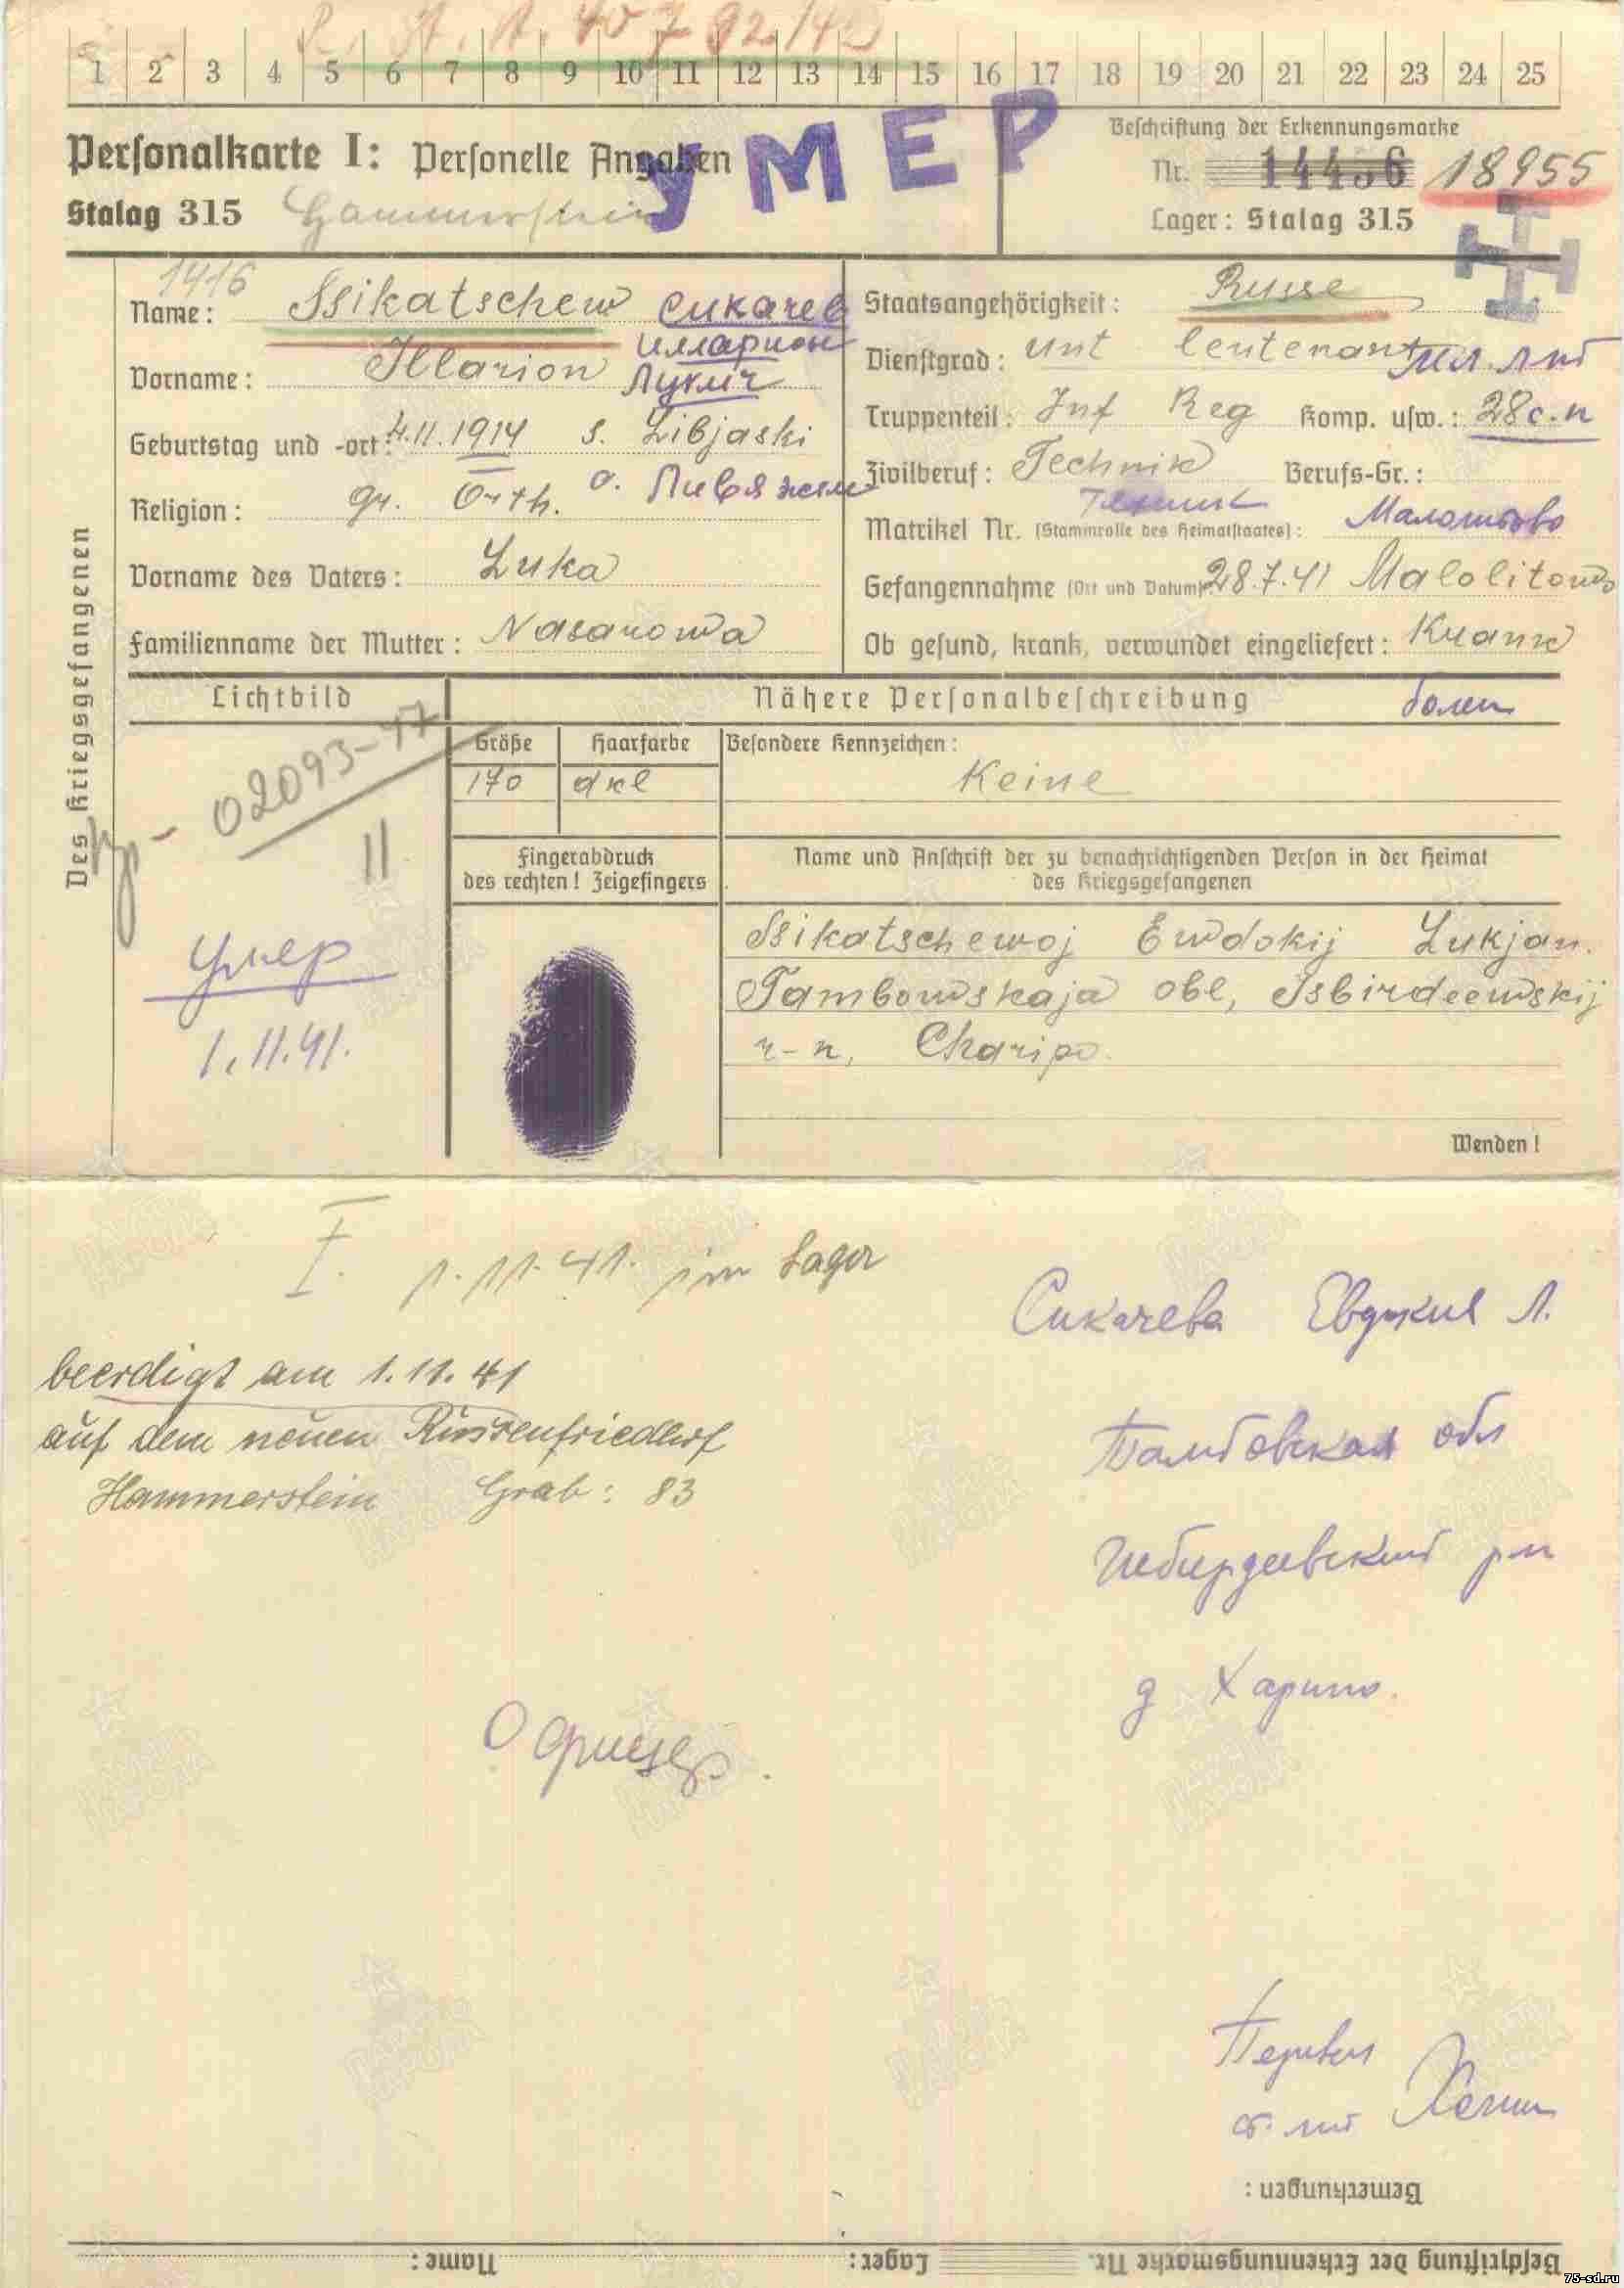 1 2 3 4 5 6 7 8 9 10 11 12 13 14 15 16 17 18 19 20 21 22 23 24 25
УМЕР
Personalkarte I: Personelle Angaben
Stalag 315 Hammerstein
Beschriftung der Erkennungsmarke
Nr. 14456 18955
Lager: Stalag 315
Des Kriegsgefangenen
1416
Name: Ssikatschew Сикачев
Илларион
Vorname: Illarion Лукич
Geburtstag und -ort: 4.11.1914 s. Libjaski
Religion: gr. Orth.
Vorname des Vaters: Luka
Familienname der Mutter: Nasarowa
Staatsangehörigkeit: Russe
Dienstgrad: unt leutenant мл. лнт
Truppenteil: Inf Reg Komp. usw.: 28 с.п
Zivilberuf: Technik Berufs-Gr.:
Техник
Matrikel Nr. (Stammrolle des Heimatstaates):
Gefangennahme (Ort und Datum): 28.7.41 Malolitowo
Ob gesund, krank, verwundet eingeliefert: Krank
болен
Lichtbild
02093-47
11
умер
1.11.41.
Nähere Personalbeschreibung
Größe Haarfarbe Besondere Kennzeichen:
170 dkl Keine
Fingerabdruck
des rechten! Zeigefingers
Name und Anschrift der zu benachrichtigenden Person in der Heimat
des Kriegsgefangenen
Ssikatschewoj Ewdokij Lukjan.
Tambowskaja obl, Isbirdeewskij
r-n, Charipo.
Wenden!
I. 1.11.41. im Lager
beerdigt am 1.11.41
auf dem neuen Russenfriedhof
Hammerstein Grab: 83
Сикачева Евдокия Л.
Тамбовская обл
Избирдеевский р-н
д Харипо.
Офицер.
Перевел
ст. лнт
Bemerkungen:
Beschriftung der Erkennungsmarke Nr. Lager: Name:
75-sd.ru